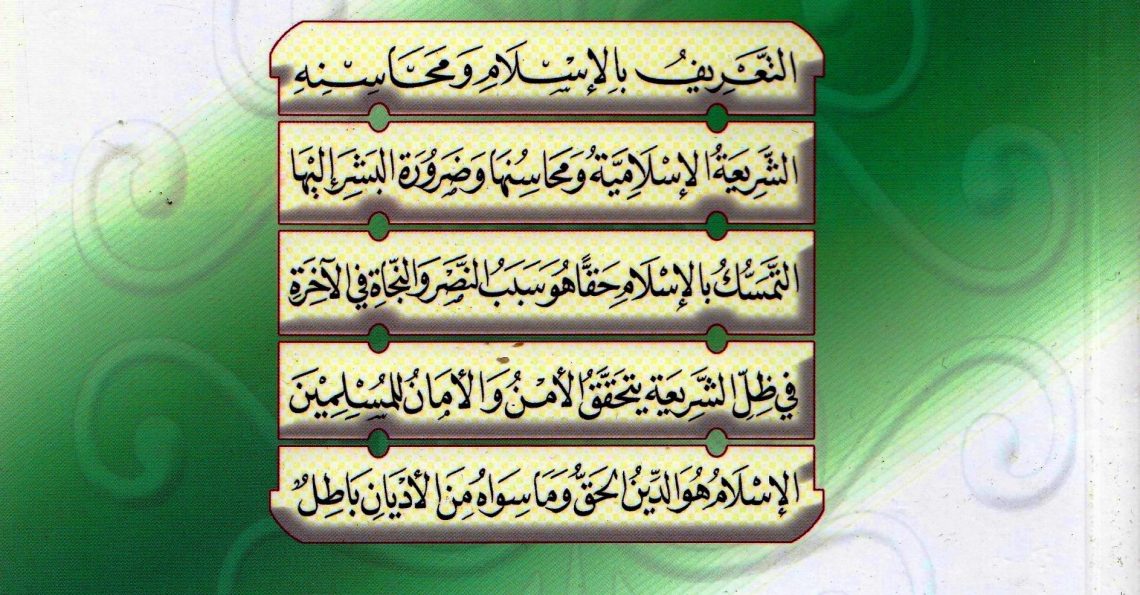 التَّعْرِيفُ بِالإِسْلَامِ وَمَحَاسِنِهِ
الشَّرِيعَةُ الإِسْلَامِيَّةُ وَمَحَاسِنُهَا وَضَرُورَة البَشَرِ إِلَيْهَا
التَّمَسُّكُ بِالإِسْلَامِ حَقًّا هُوَ سَبَبُ النَّصْرِ وَالنَّجَاةِ فِي الآخِرَةِ
فِي ظِلِّ الشَّرِيعَةِ يَتَحَقَّقُ الأَمْنُ وَالأَمَانُ لِلْمُسْلِمِيْنَ
الإِسْلَامُ هُوَ الدِّينُ الحَقُّ وَمَا سِوَاهُ مِنَ الأَدْيَانِ بَاطِلٌ